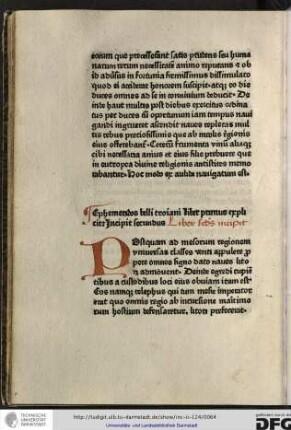 eorum que precessissent satis prudens seu huma
narum rerum necessitatem animo reputans et ob
id aduersus in fortunia firmissimus dissimulato
quod ei acciderat honorem suscipit. atque eo die
duces omnes ad se in conuiuium deducit. De
inde haut multos post dies exercitus ordina
tus per duces
opertunum iam tempus naui
gandi ingrueret ascendit naues repletas mul
tis rebus preciosissimis que ab incolis regionis
eius offerebantur. Ceterum frumenta vinum aliaque
cibi necessaria
et eius filie prebuere que
religionis antistites memo
rabantur. Hoc modo ex aulide nauigatum est.
Ephemeridos belli troiani liber primus expli
cit Incipit secundus Liber secundus incipit
Postquam ad mesorum regionem
vniuersas classes venti appulere pro
pere omnes signo dato naues litori
admouent. Deinde egredi cupien
tibus a custodibus loci eius obuiam itum est.
Eos namque telephus qui tum mesie imperator
erat quo omnis regio ab incursione maritimo
rum hostium defensaretur. litori prefecerat.
TECHNISCHE
UNIVERSITÄT
DARMSTADT
http://tudigit.ulb.tu-darmstadt.de/show/inc-ii-124/0064
Universitäts- und Landesbibliothek Darmstadt
gefördert durch die
DFG